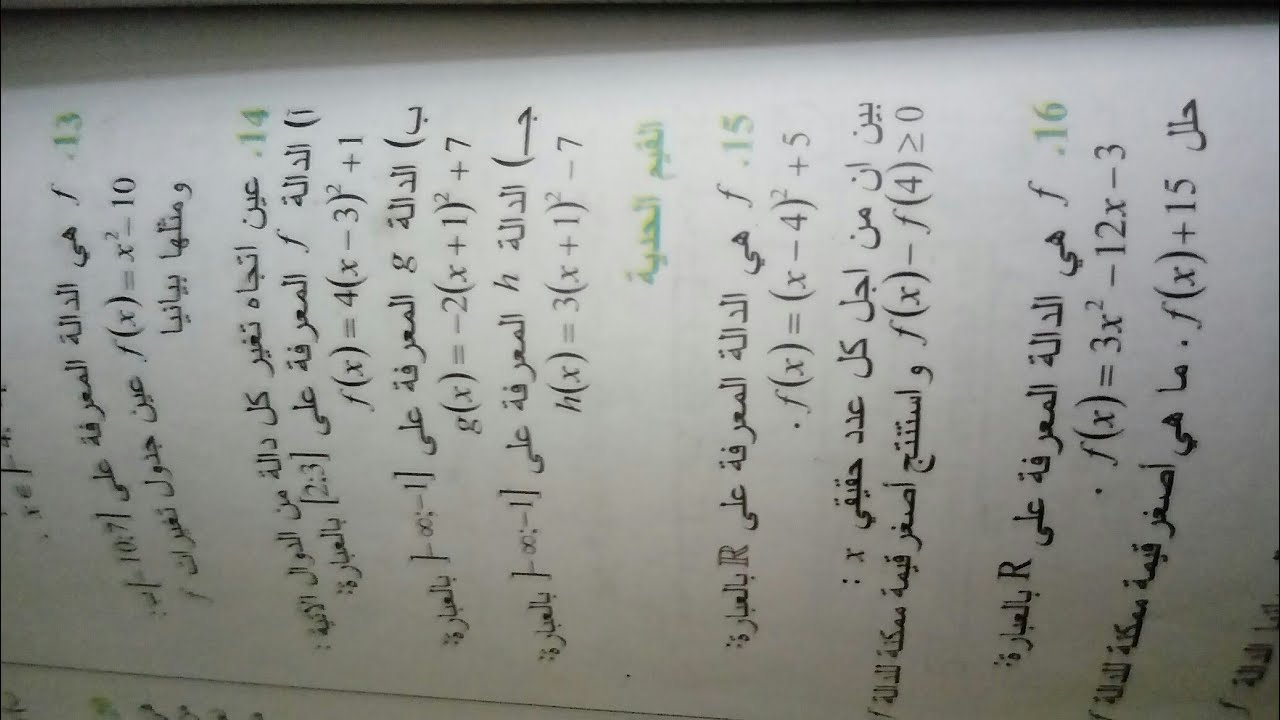 13. f هي الدالة المعرفة على
[-10;7] بـ: f(x) = x² - 10. عين جدول تغيرات f
ومثلها بيانيا
14. عين اتجاه تغير كل دالة من الدوال الآتية :
آ) الدالة f المعرفة على [2;3] بالعبارة:
f(x) = 4(x - 3)² + 1
ب) الدالة g المعرفة على ]-∞;-1] بالعبارة:
g(x) = -2(x + 1)² + 7
جـ) الدالة h المعرفة على ]-∞;-1] بالعبارة:
h(x) = 3(x + 1)² - 7
القيم الحدية
15. f هي الدالة المعرفة على ℝ بالعبارة:
. f(x) = (x - 4)² + 5
بين ان من اجل كل عدد حقيقي x :
f(x) - f(4) ≥ 0 و استنتج أصغر قيمة ممكنة للدالة f
16. f هي الدالة المعرفة على R بالعبارة:
. f(x) = 3x² - 12x - 3
حلل f(x) + 15 . ما هي أصغر قيمة ممكنة للدالة f
الدالة f